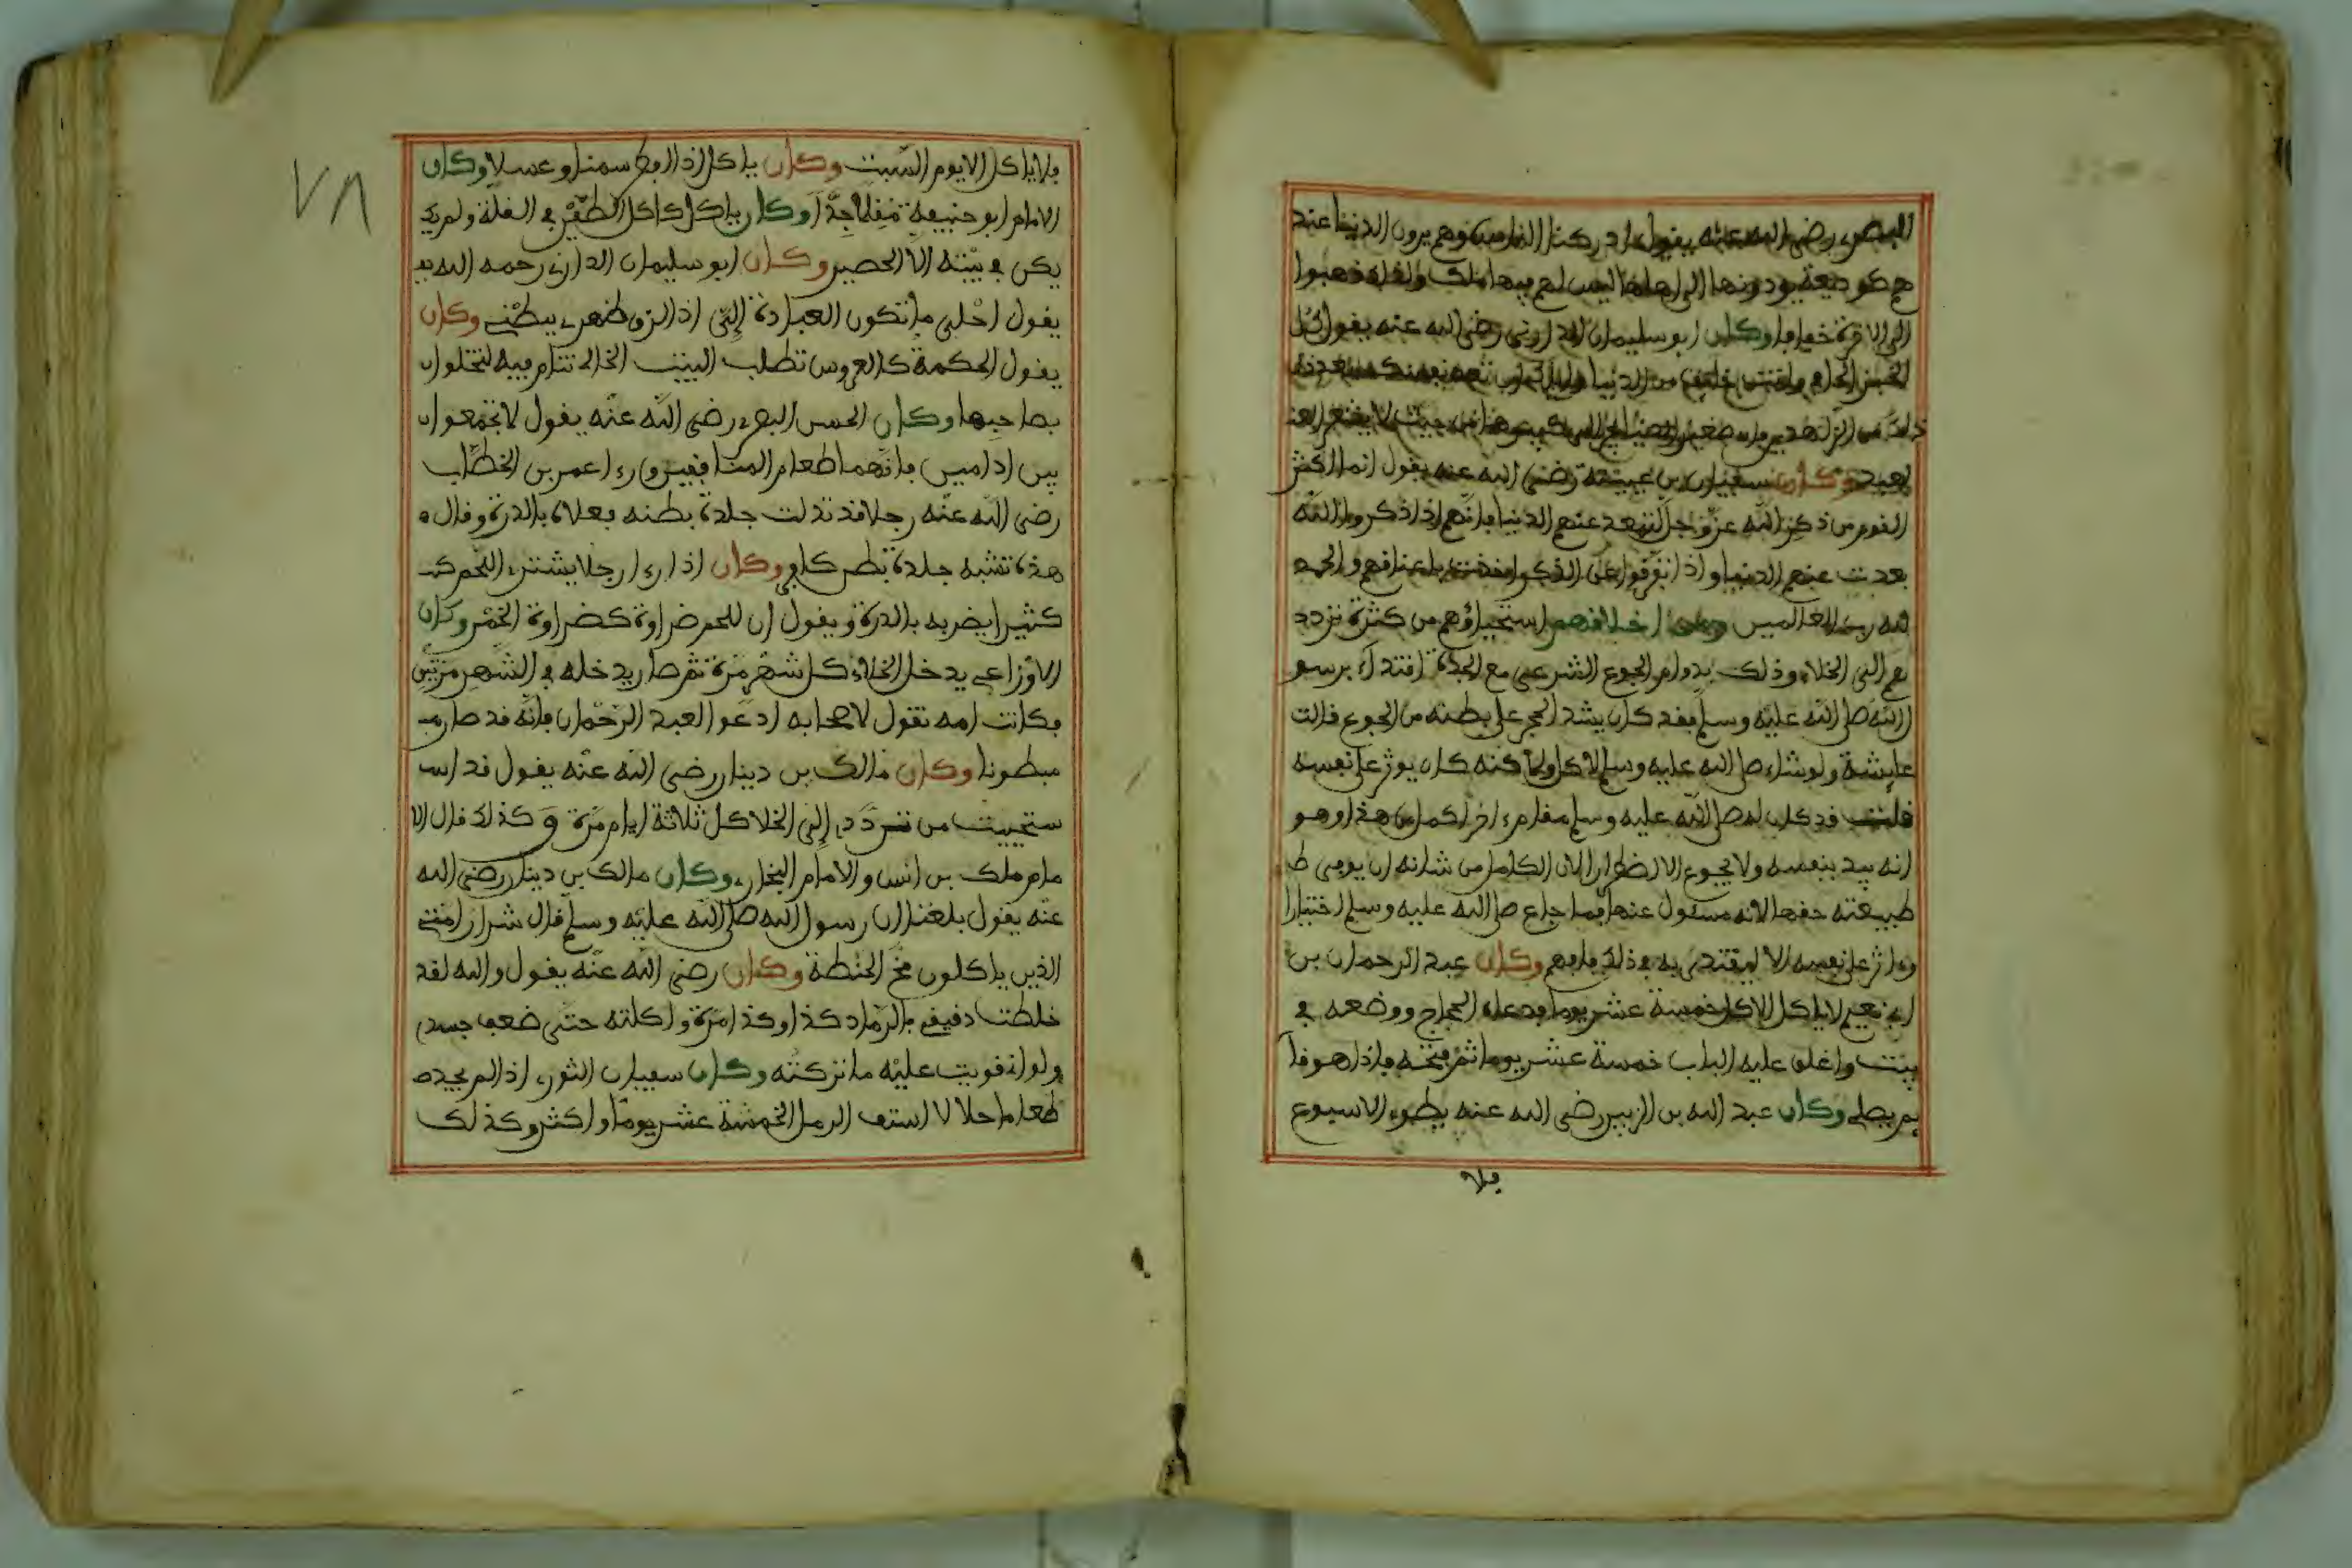 البصري رضى الله عنه يقول ادركنا الناس وهم يرون الدنيا عند
هم كوديعة يودونها الى اهلها ليس لهم فيها ملك ولذا ذهبوا
الى الاخرة خفافا وكان ابو سليمان الدارني رضى الله عنه يقول كل
من الدنيا
ذلك من الزهد من حيث لا يشعر العبد
لعبد وكان سفيان بن عيينة رضى الله عنه يقول انما اكثر
القوم من ذكر الله عز وجل لتبعد عنهم الدنيا فانهم اذا ذكروا الله
بعدت عنهم الدنيا واذا تفرقوا عن الذكر اخذت باعناقهم والحمد
لله رب العالمين ومن اخلافهم استحياؤهم من كثرة تردد
هم الى الخلاء وذلك بدوام الجوع الشرعي مع الجدة اقتداء برسو
ل الله صلى الله عليه وسلم فقد كان يشد الحجر على بطنه من الجوع قالت
عايشة ولو شاء صلى الله عليه وسلم لاكل ولاكنه كان يوثر على نفسه
قلت قد كان له صلى الله عليه وسلم مقام اخر اكمل من هذا وهو
انه يبد بنفسه ولا يجوع الا اضطرارا لان الكامل من شانه ان يوفى ط
طبيعته حقها لانه مسئول عنها فما جاع صلى الله عليه وسلم اختيارا
وءاثر على نفسه الا ليقتدى به في ذلك فافهم وكان عبد الرحمان بن
ابي نعيم لا ياكل الا كل خمسة عشر يوما فدعاه الحجاج ووضعه في
بيت واغلق عليه الباب خمسة عشر يوما ثم فتحه فاذا هو قا
يم يصلي وكان عبد الله بن الزبير رضى الله عنه يطوي الاسبوع
فلا
٧٨
فلا ياكل الا يوم السبت وكان ياكل اذا افطر سمنا وعسلا وكان
الامام ابو حنيفة مقلا جدا وكان ياكل كاكل الطير في القلة ولم يك
يكن في بيته الا الحصير وكان ابو سليمان الدارني رحمه الله
يقول احلى ما تكون العبادة الى اذا لزق ظهري ببطني وكان
يقول الحكمة كالعروس تطلب البيت الخالي تنام فيه لتخلوا
بصاحبها وكان الحسن البصري رضى الله عنه يقول لا تجمعوا
بين ادامين فانهما طعام المنافقين ورءا عمر بن الخطاب
رضى الله عنه رجلا قد تدلت جلدة بطنه فعلاه بالدرة وقال ه
هذه تشبه جلدة بطن كافر وكان اذا رءا رجلا يشتري اللحم ك
كثيرا يضربه بالدرة ويقول ان للحم ضراوة كضراوة الخمر وكان
الاوزاعي يدخل الخلاء كل شهر مرة ثم صار يدخله في الشهر مرتين
فكانت امه تقول لاصحابه ادعوا لعبد الرحمان فانه قد صار م
مبطونا وكان مالك بن دينار رضى الله عنه يقول قد است
ستحييت من ترددي الى الخلا كل ثلاثة ايام مرة وكذلك قال الا
مام ملك بن انس والامام البخاري وكان مالك بن دينار رضى الله
عنه يقول بلغنا ان رسول الله صلى الله عليه وسلم قال شرار امتي
الذين ياكلون مخ الحنطة وكان رضى الله عنه يقول والله لقد
خلطت دقيقي بالرماد كذا وكذا مرة واكلته حتى ضعف جسدي
ولو اني قويت عليه ما تركته وكان سفيان الثوري اذا لم يجد ط
طعاما حلالا استف الرمل الخمسة عشر يوما واكثر وكذلك